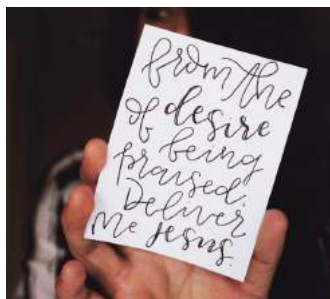 from the
of desire
being
praised.
Deliver
me Jesus.